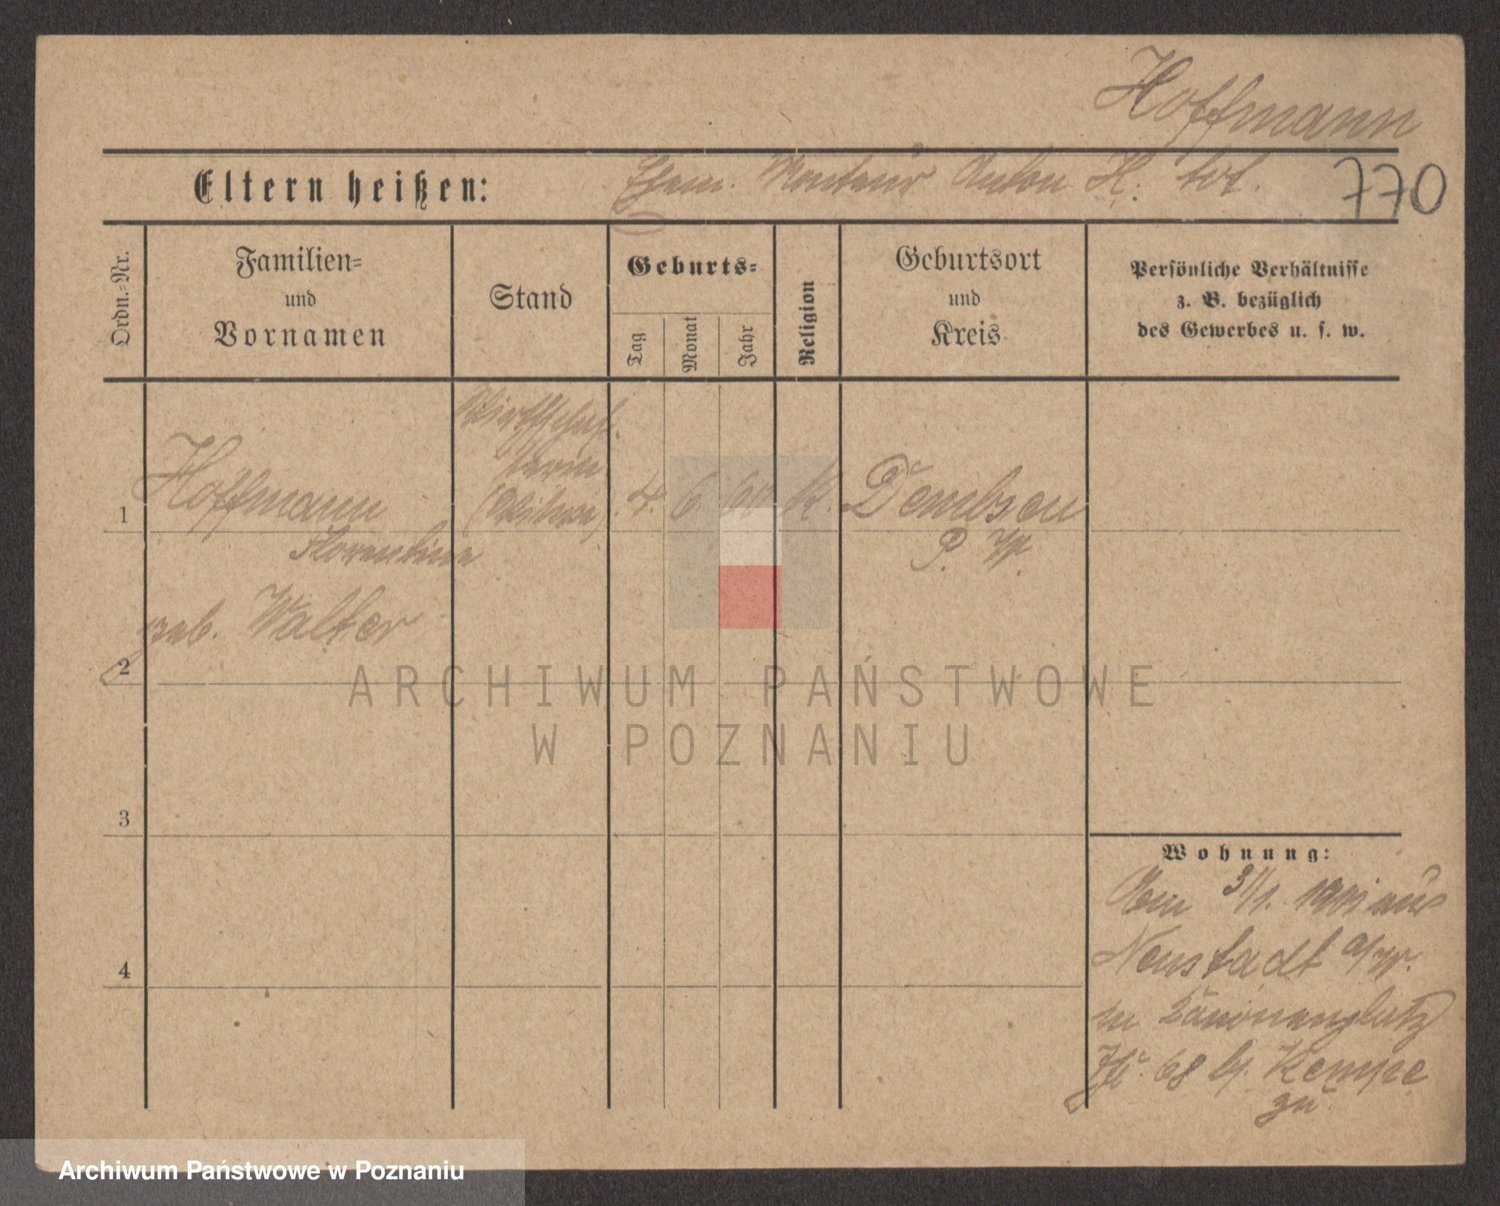 Hoffmann
Eltern heißen: Ehem. Monteur Anton H. tot.
770
Ordn.=Nr.
Familien=
und
Vornamen
Stand
Geburts=
Tag
Monat
Jahr
Religion
Geburtsort
und
Kreis
Persönliche Verhältnisse
z. B. bezüglich
des Gewerbes u. s. w.
1
Hoffmann
Florentine
geb. Walter
Wirthschaf.
terin
(Witwe)
4. 6 60 K.
Dembsen
P. W.
2
3
4
Wohnung:
Am 3/1. 1901 aus
Neustadt a/W.
n Kanonenplatz
68 b. Kempe
zu
ARCHIWUM PAŃSTWOWE
W POZNANIU
Archiwum Państwowe w Poznaniu